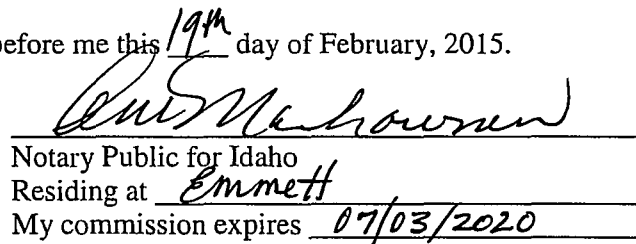 before me this 19th day of February, 2015.
Notary Public for Idaho
Residing at Emmett
My commission expires 07/03/2020